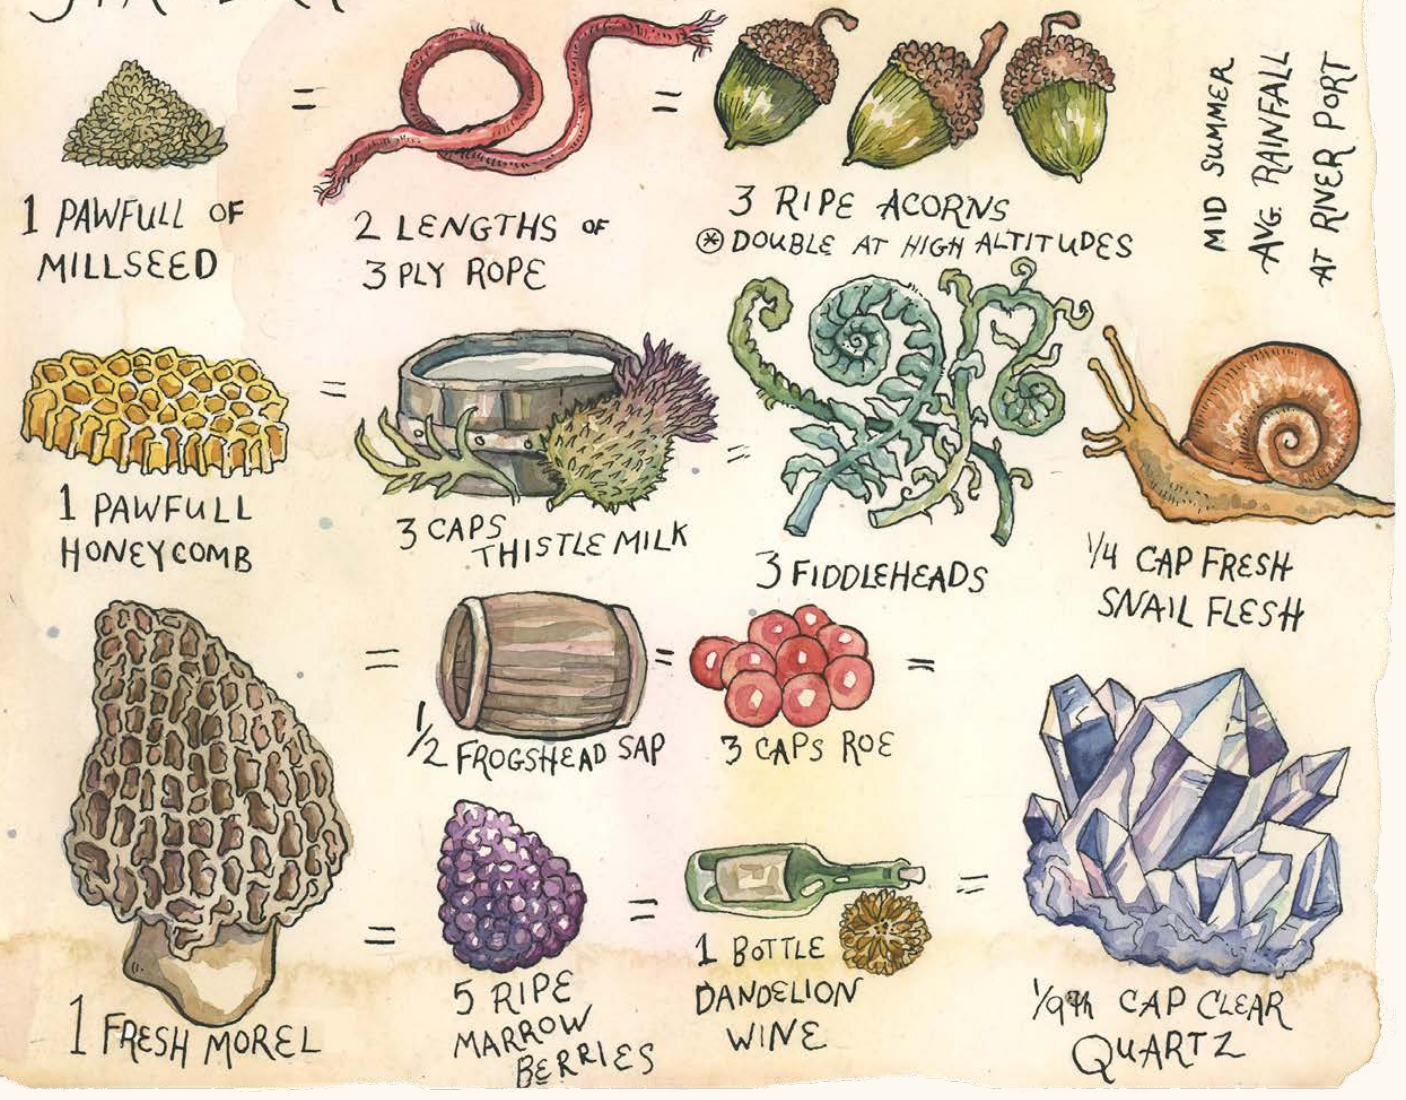 1 PAWFULL OF
MILLSEED
=
2 LENGTHS OF
3 PLY ROPE
=
3 RIPE ACORNS
⊛ DOUBLE AT HIGH ALTITUDES
MID SUMMER
AVG. RAINFALL
AT RIVER PORT
1 PAWFULL
HONEYCOMB
=
3 CAPS
THISTLE MILK
=
3 FIDDLEHEADS
1/4 CAP FRESH
SNAIL FLESH
1 FRESH MOREL
=
1/2 FROGSHEAD SAP
=
3 CAPS ROE
=
=
5 RIPE
MARROW
BERRIES
=
1 BOTTLE
DANDELION
WINE
=
1/9th CAP CLEAR
QUARTZ